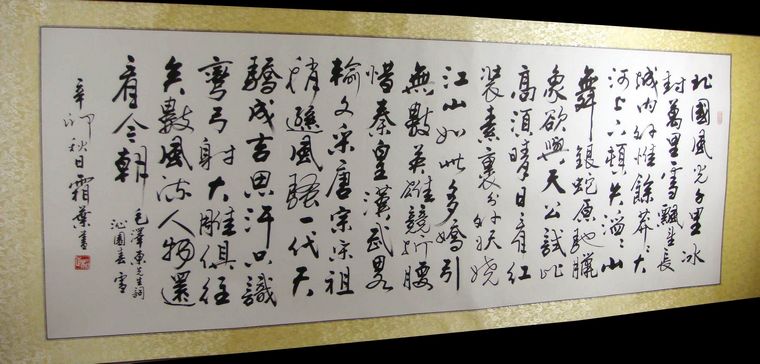 北國風光千里冰
封萬里雪飄望長
城内外惟餘莽〻大
河上下頓失滔〻山
舞銀蛇原馳臘
象欲與天公試比
高須晴日看紅
裝素裹分外妖嬈
江山如此多嬌引
無數英雄競折腰
惜秦皇漢武略
輸文采唐宗宋祖
稍遜風騷一代天
驕成吉思汗只識
彎弓射大雕俱往
矣數風流人物還
看今朝
毛澤東先生詞
沁園春雪
辛卯秋日霜葉書